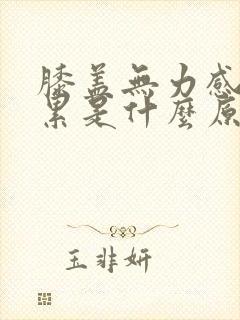 膝盖無力感
累是什麼原
玉非妍